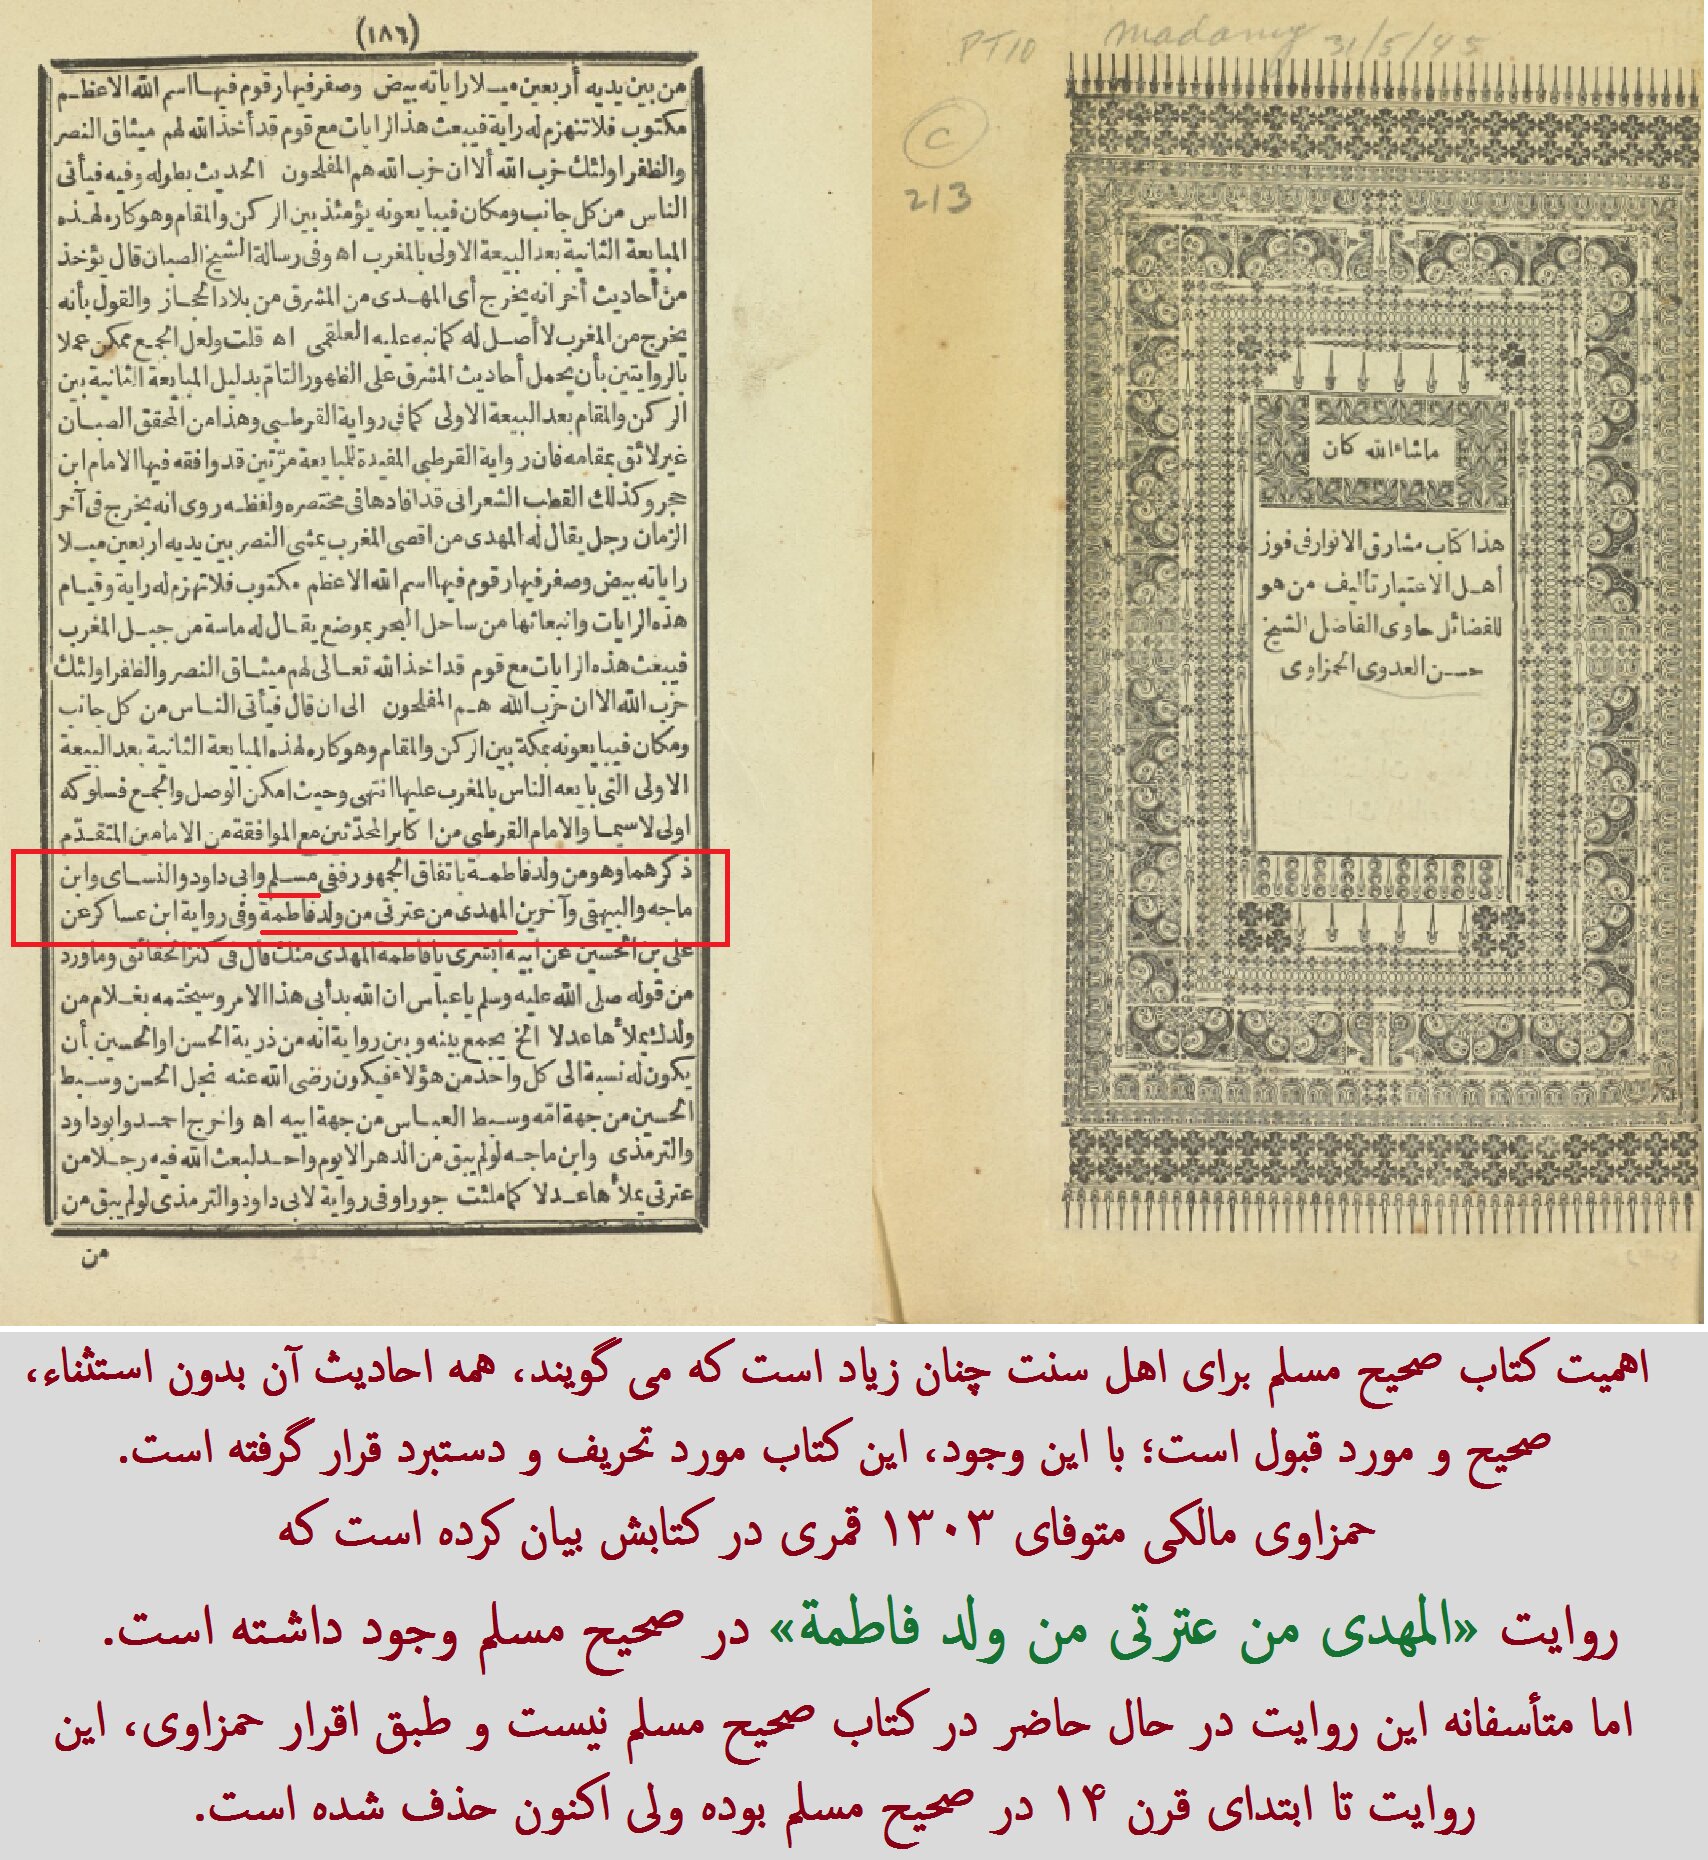 (١٨٦)
من بين يديه أربعين ميلا راياته بيض وصفر فيها رقوم فيها اسم الله الاعظم
مكتوب فلا تنهزم له راية فيبعث هذه الرايات مع قوم قد أخذ الله لهم ميثاق النصر
والظفر اولئك حزب الله ألا ان حزب الله هم المفلحون الحديث بطوله وفيه فيأتى
الناس من كل جانب ومكان فيبايعونه يؤمئذ بين الركن والمقام وهو كاره لهذه
المبايعة الثانية بعد البيعة الاولى بالمغرب اه وفى رسالة الشيخ الصبان قال يؤخذ
من أحاديث أخر انه يخرج أى المهدى من المشرق من بلاد الحجاز والقول بأنه
يخرج من المغرب لا أصل له كما نبه عليه العلقمى اه قلت ولعل الجمع ممكن عملا
بالروايتين بأن يحمل أحاديث المشرق على الظهور التام بدليل المبايعة الثانية بين
الركن والمقام بعد البيعة الاولى كما فى رواية القرطبى وهذا من المحقق الصبان
غير لائق بمقامه فان رواية القرطبى المفيدة للمبايعة مرّتين قد وافقه فيها الامام ابن
حجر وكذلك القطب الشعرانى قد افادها فى مختصره ولفظه روى انه يخرج فى آخر
الزمان رجل يقال له المهدى من اقصى المغرب يمشى النصر بين يديه اربعين ميلا
راياته بيض وصفر فيها رقوم فيها اسم الله الاعظم مكتوب فلا تهزم له راية وقيام
هذه الرايات وانبعاثها من ساحل البحر بموضع يقال له ماسة من جبل المغرب
فيبعث هذه الرايات مع قوم قد اخذ الله تعالى لهم ميثاق النصر والظفر اولئك
حزب الله الا ان حزب الله هم المفلحون الى ان قال فيأتى الناس من كل جانب
ومكان فيبايعونه بمكة بين الركن والمقام وهو كاره لهذه المبايعة الثانية بعد البيعة
الاولى التى بايعه الناس بالمغرب عليها انتهى وحيث امكن الوصل والجمع فسلوكه
اولى لاسيما والامام القرطبى من اكابر المحدّثين مع الموافقة من الامامين المتقدّم
ذكرهما وهو من ولد فاطمة باتفاق الجمهور ففى مسلم وابى داود والنساى وابن
ماجه والبيهقى وآخرين المهدى من عترتى من ولد فاطمة وفى رواية ابن عساكر عن
على بن الحسين عن ابيه ابشرى يا فاطمة المهدى منك قال فى كنز الحقائق وما ورد
من قوله صلى الله عليه وسلم يا عباس ان الله بدأ بى هذا الامر وسيختمه بغلام من
ولدك يملأها عدلا الخ يجمع بينه وبين رواية انه من ذرية الحسن او الحسين بأن
يكون له نسبة الى كل واحد من هؤلاء فيكون رضى الله عنه نجل الحسن وسبط
الحسين من جهة امّه وسبط العباس من جهة ابيه اه واخرج احمد وابو داود
والترمذى وابن ماجه لو لم يبق من الدهر الا يوم واحد لبعث الله فيه رجلا من
عترتى يملأها عدلا كما ملئت جورا وفى رواية لابى داود والترمذى لو لم يبق من
من
PT10 madany 31/5/45
C
213
ماشاء الله كان
هذا كتاب مشارق الانوار فى فوز
أهل الاعتبار تأليف من هو
للفضائل حاوى الفاضل الشيخ
حسن العدوى الحمزاوى
اهمیت کتاب صحیح مسلم برای اهل سنت چنان زیاد است که می گویند، همه احادیث آن بدون استثناء،
صحیح و مورد قبول است؛ با این وجود، این کتاب مورد تحریف و دستبرد قرار گرفته است.
حمزاوی مالکی متوفای ۱۳۰۳ قمری در کتابش بیان کرده است که
روایت «المهدی من عترتی من ولد فاطمة» در صحیح مسلم وجود داشته است.
اما متأسفانه این روایت در حال حاضر در کتاب صحیح مسلم نیست و طبق اقرار حمزاوی، این
روایت تا ابتدای قرن ۱۴ در صحیح مسلم بوده ولی اکنون حذف شده است.